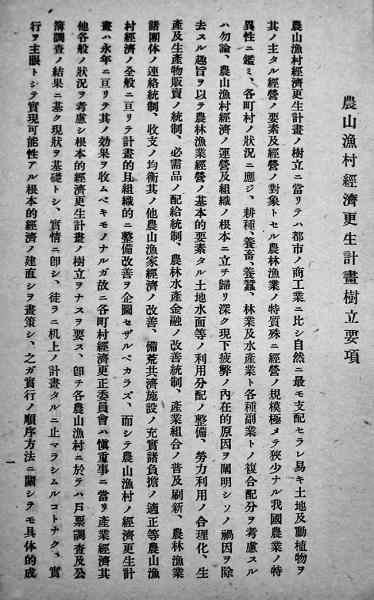 農山漁村經濟更生計畫樹立要項
農山漁村經濟更生計畫ノ樹立ニ當リテハ都市ノ商工業ニ比シ自然ニ最モ支配セラレ易キ土地及動植物ヲ
其ノ主タル經營ノ要素及經營ノ對象トセル農林漁業ノ特質殊ニ經營ノ規模極メテ狹少ナル我國農業ノ特
異性ニ鑑ミ、各町村ノ狀況ニ應ジ、耕種、養畜、養蠶、林業及水產業ト各種副業トノ複合配分ヲ考慮スル
ハ勿論、農山漁村經濟ノ運營及組織ノ根本ニ立チ歸リ深ク現下疲弊ノ內在的原因ヲ闡明シソノ禍因ヲ除
去スル趣旨ヲ以テ農林漁業經營ノ基本的要素タル土地水面等ノ利用分配ノ整備、勞力利用ノ合理化、生
產及生產物販賣ノ統制、必需品ノ配給統制、農林水產金融ノ改善統制、產業組合ノ普及刷新、農林漁業
諸團体ノ連絡統制、收支ノ均衡其ノ他農山漁家經濟ノ改善、備荒共濟施設ノ充實諸負擔ノ適正等農山漁
村經濟ノ全般ニ亘リテ計畫的且組織的ニ整備改善ヲ企圖セザルベカラズ、而シテ農山漁村ノ經濟更生計
畫ハ永年ニ亘リテ其ノ効果ヲ收ムベキモノナルガ故ニ各町村經濟更正委員會ハ愼重事ニ當リ產業經濟其
他各般ノ狀況ヲ考慮シ根本的經濟更生計畫ノ樹立ヲナスヲ要ス、卽チ各農山漁村ニ於テハ戶票調査及公
簿調査ノ結果ニ基ク現狀ヲ基礎トシ、實情ニ卽シ、徒ラニ机上ノ計畫タルニ止マラシムルコトナク、實
行ヲ主眼トシテ實現可能性アル根本的經濟ノ建直シヲ畫策シ、之ガ實行ノ順序方法ニ關シテモ具体的成
一